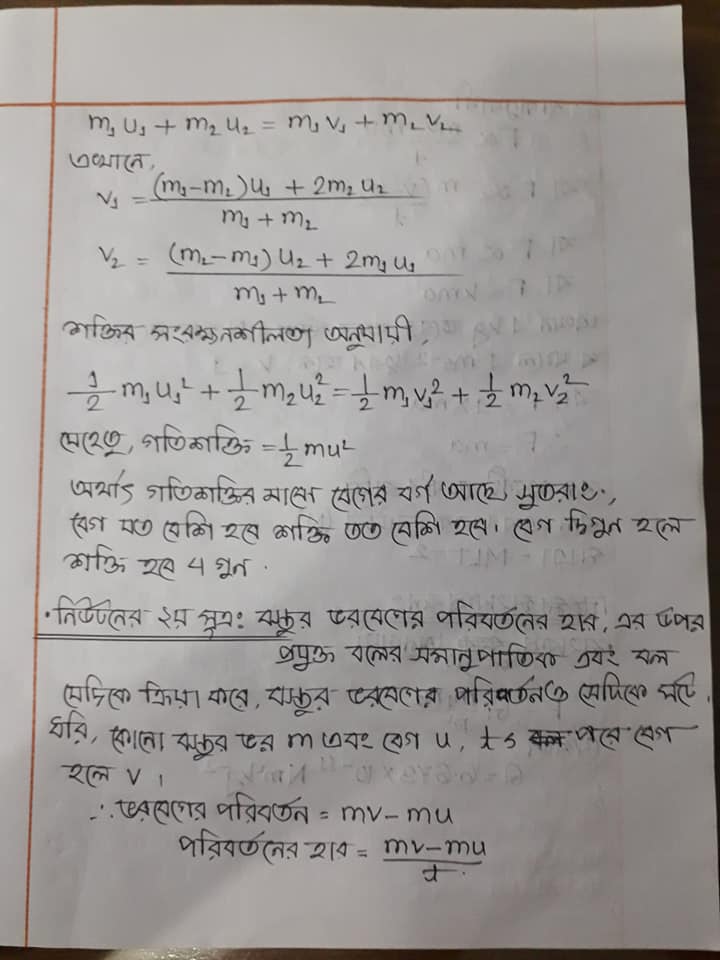 m₁u₁ + m₂u₂ = m₁v₁ + m₂v₂
এখানে,
v₁ = \frac{(m₁-m₂)u₁ + 2m₂u₂}{m₁ + m₂}
v₂ = \frac{(m₂-m₁)u₂ + 2m₁u₁}{m₁ + m₂}
শক্তির সংরক্ষনশীলতা অনুযায়ী,
\frac{1}{2} m₁u₁² + \frac{1}{2} m₂u₂² = \frac{1}{2} m₁v₁² + \frac{1}{2} m₂v₂²
যেহেতু, গতিশক্তি = \frac{1}{2} mu²
অর্থাৎ গতিশক্তির মাঝে বেগের বর্গ আছে। সুতরাং,
বেগ যত বেশি হবে শক্তি তত বেশি হবে। বেগ দ্বিগুন হলে
শক্তি হবে 4 গুন।
• নিউটনের ২য় সূত্র: বস্তুর ভরবেগের পরিবর্তনের হার, এর উপর
প্রযুক্ত বলের সমানুপাতিক এবং বল
যেদিকে ক্রিয়া করে, বস্তুর ভরবেগের পরিবর্তনও সেদিকে ঘটে।
ধরি, কোনো বস্তুর ভর m এবং বেগ u, t s পরে বেগ
হলে v,
∴ ভরবেগের পরিবর্তন = mv - mu
পরিবর্তনের হার = \frac{mv - mu}{t}